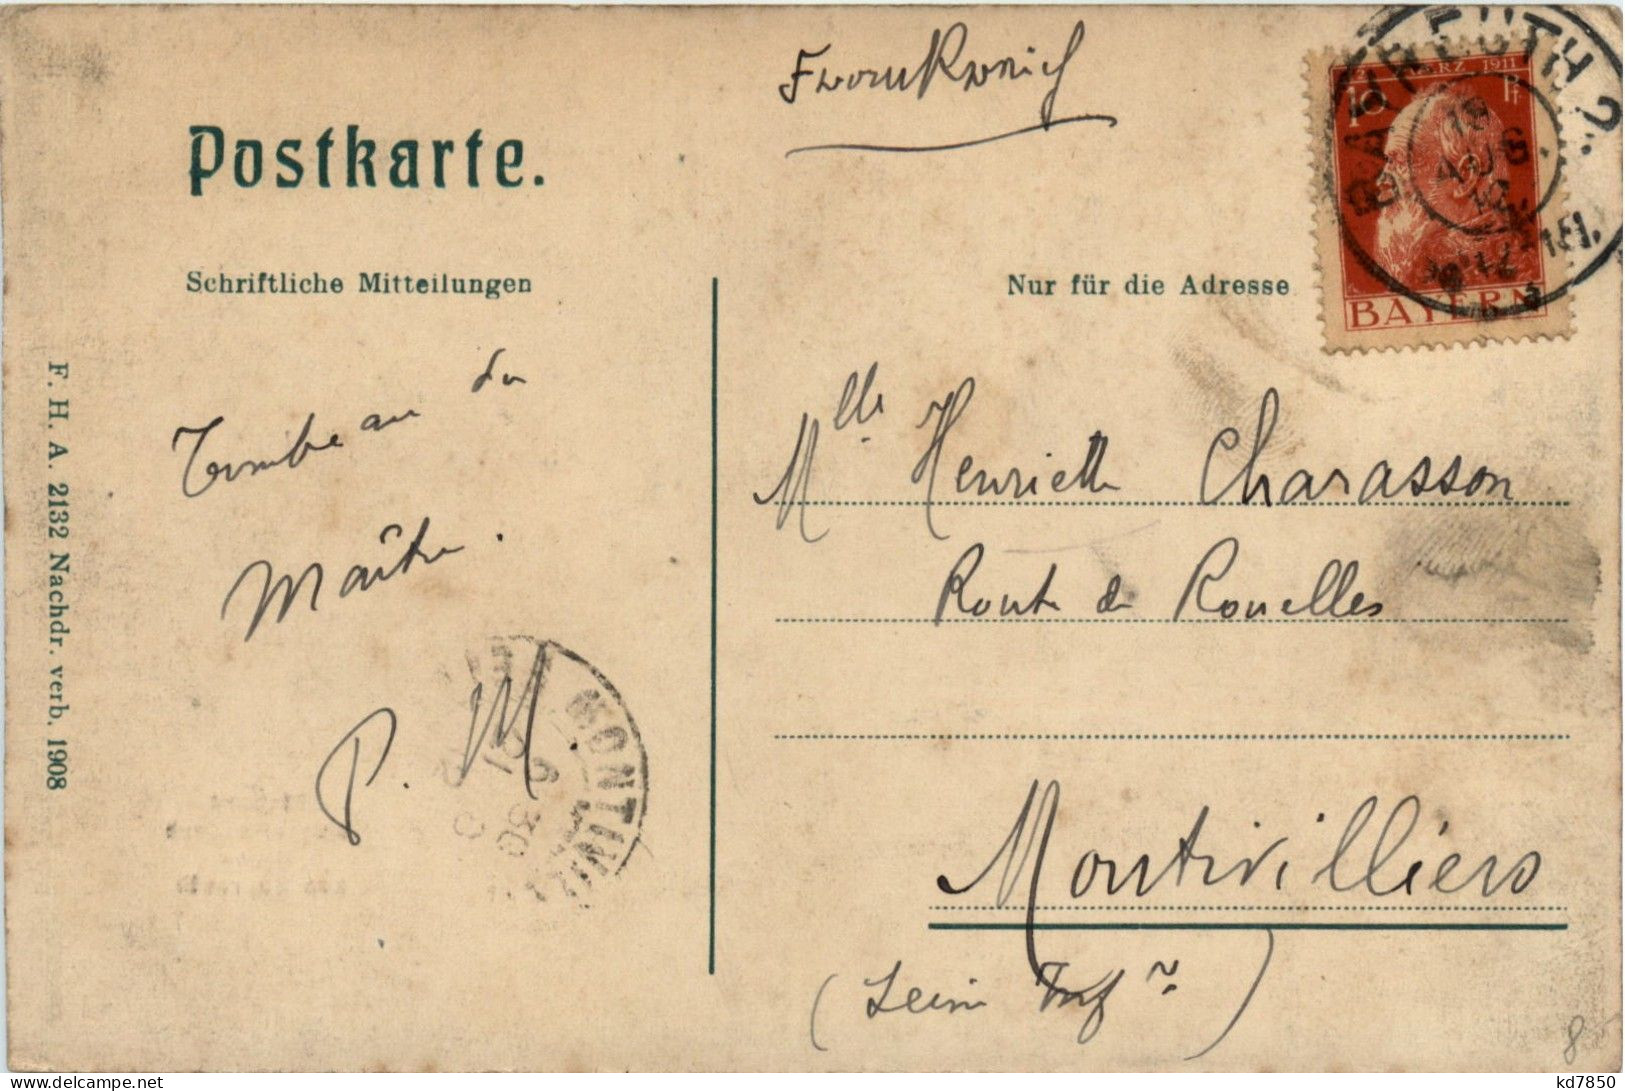 Frankreich
Postkarte.
Schriftliche Mitteilungen
Nur für die Adresse
12. MÄRZ 1911
10 Pf
BAYERN
BAYREUTH 2.
19
AUG
12
Tombeau du
Maître.
P. M.
Mlle Henriette Charasson
Route de Rouelles
Montivilliers
(Seine Infre)
MONTIVILLIERS
F. H. A. 2132 Nachdr. verb. 1908
8
www.delcampe.net
kd7850